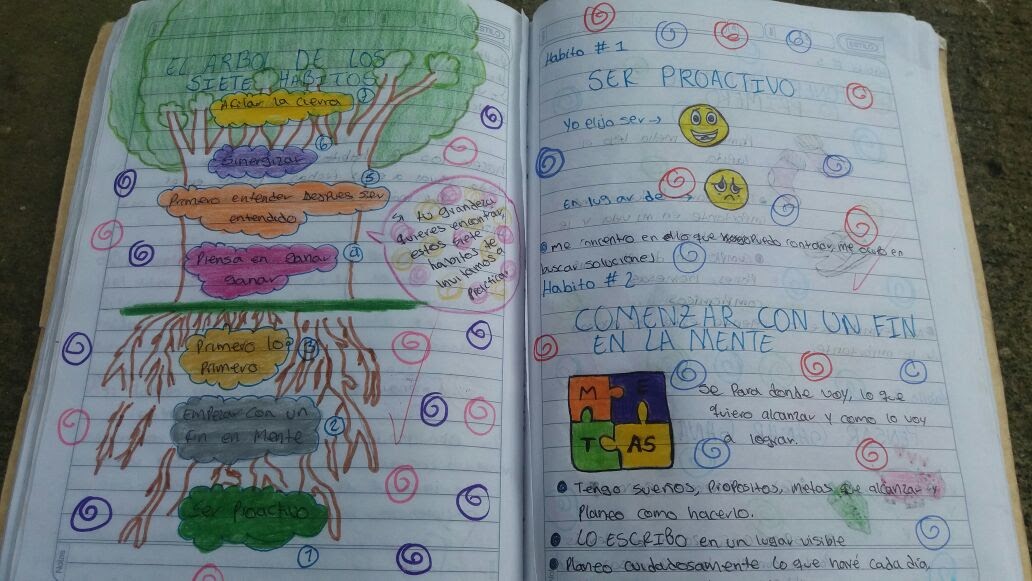 EL ARBOL DE LOS
SIETE HABITOS
Afilar la cierra
7
Sinergizar
6
5
Primero entender Despues ser
entendido
Piensa en ganar
ganar
4
Primero lo
Primero
3
Empezar con un
fin en Mente
2
Ser Proactivo
1
Si tu grandeza
quieres encontrar,
estos siete
habitos de
practicar
Habito # 1
SER PROACTIVO
Yo elijo ser →
EN lugar de →
me concentro en lo que puedo controlar, me en
buscar soluciones
Habito # 2
COMENZAR CON UN FIN
EN LA MENTE
M E
T AS
Se Para donde voy, lo que
quiero alcanzar y como lo voy
a lograr.
Tengo sueños, Propositos, metas que alcanzar y
Planeo como hacerlo.
LO ESCRIBO en un lugar visible
Planeo cuidadosamente lo que haré cada día,